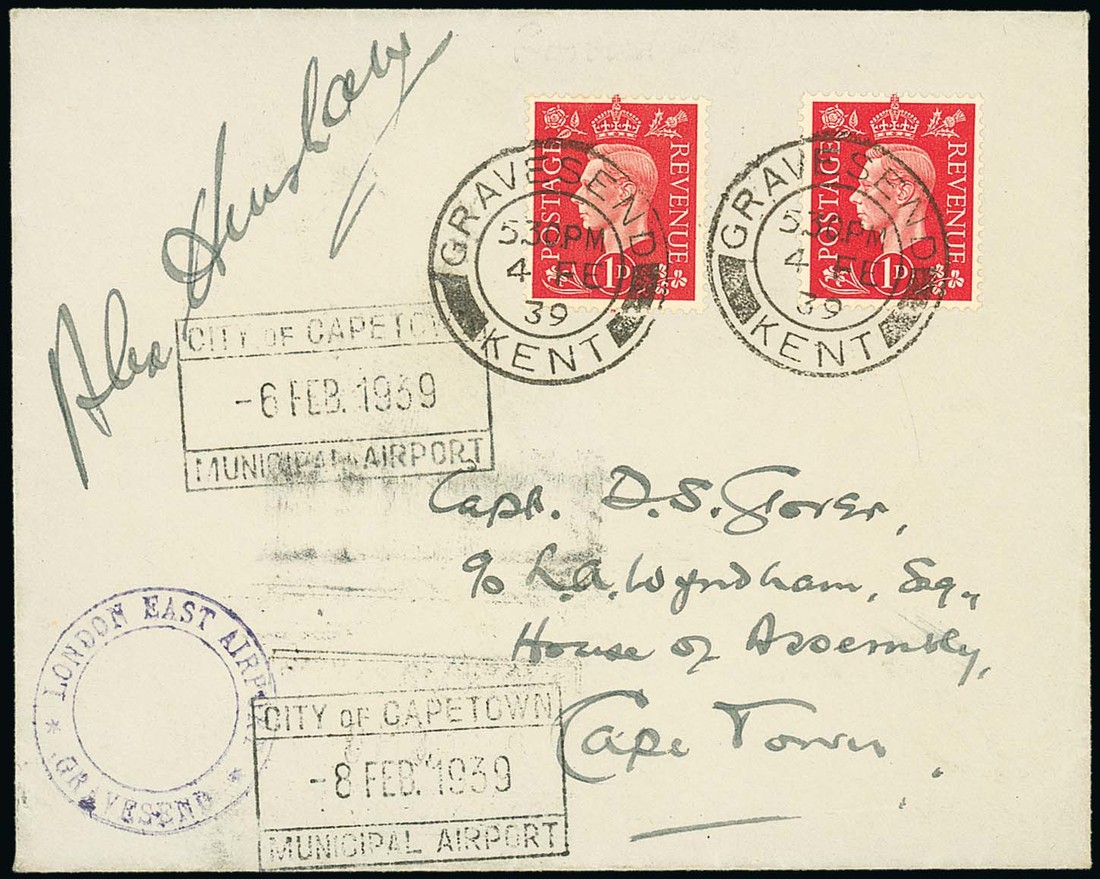 Alex Henshaw
POSTAGE REVENUE
1D
POSTAGE REVENUE
1D
GRAVESEND
5.30PM
4 FE
39
KENT
GRAVESEND
5.30PM
4 FE
39
KENT
CITY OF CAPETOWN
-6 FEB. 1939
MUNICIPAL AIRPORT
Capt. D.S. Glover,
c/o L.A. Wyndham, Esq.,
House of Assembly,
Cape Town
LONDON EAST AIRPORT
* GRAVESEND *
CITY OF CAPETOWN
-8 FEB. 1939
MUNICIPAL AIRPORT